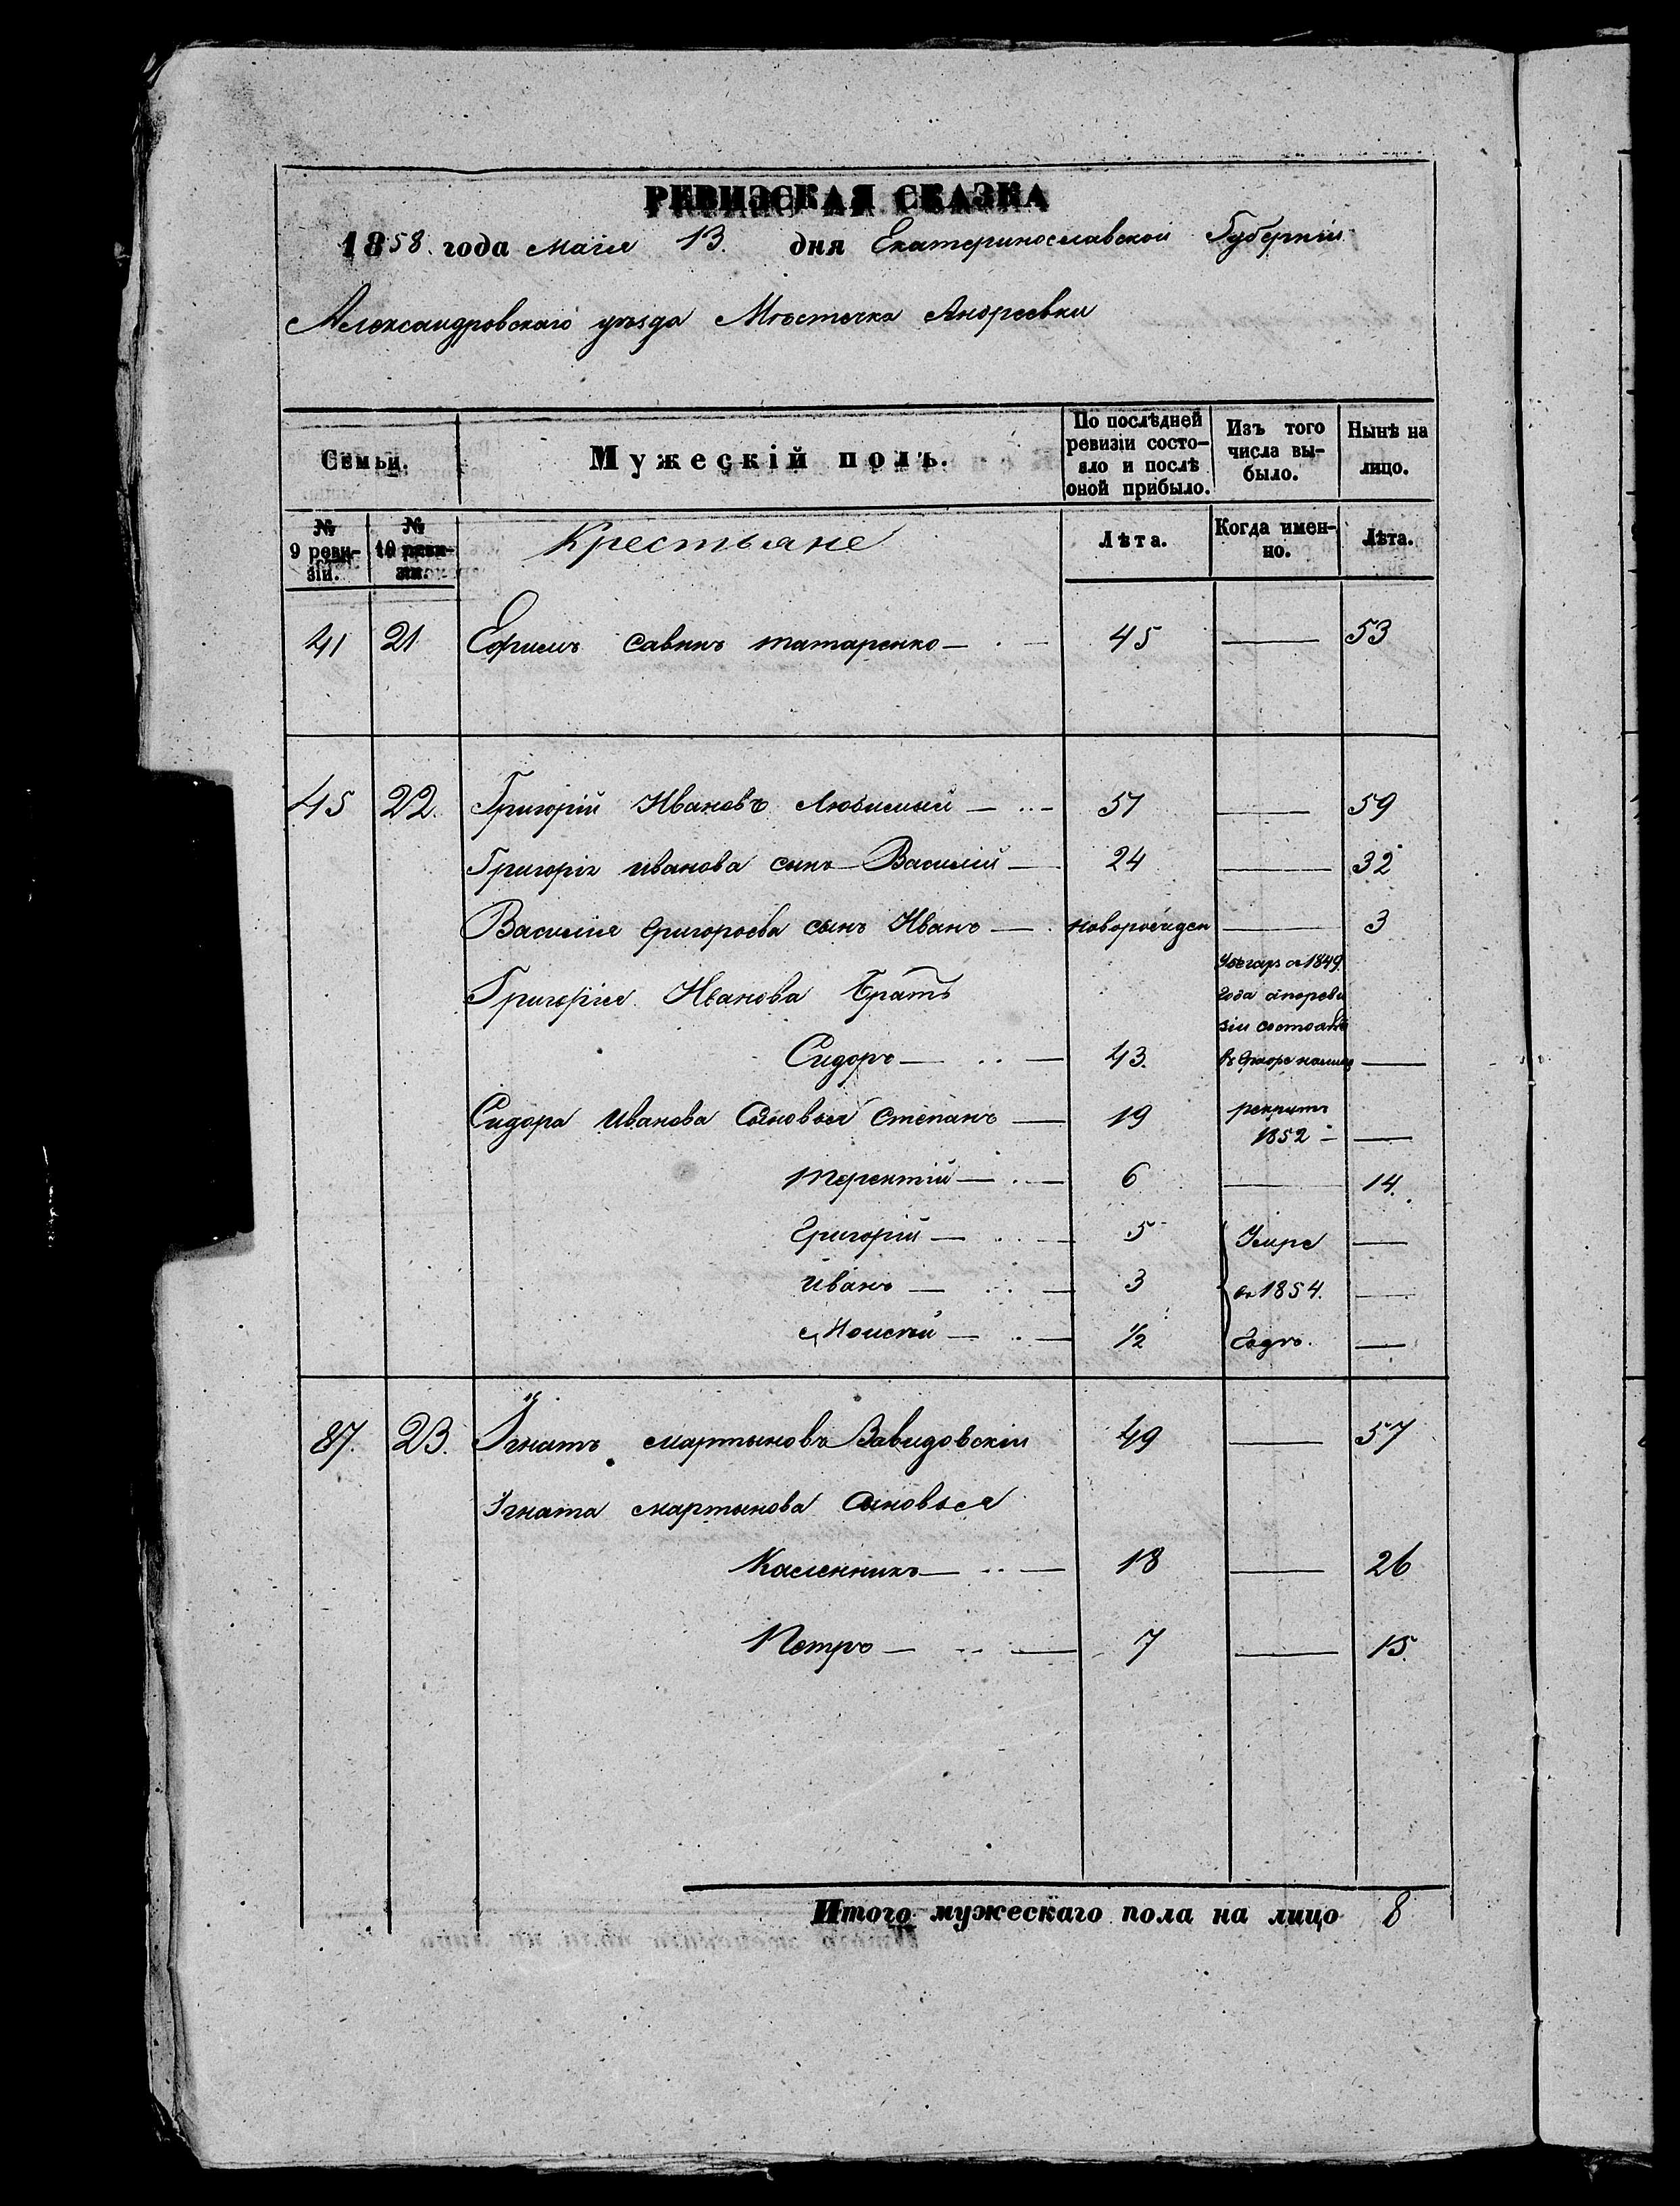 РЕВИЗСКАЯ СКАЗКА
1858. года маія 13. дня Екатеринославской Губерніи
Александровскаго уѣзда Мѣстечка Андреевки
Семьи.
Мужескій полъ.
По послѣдней ревизіи состояло и послѣ оной прибыло.
Изъ того числа выбыло.
Нынѣ на лицо.
№ 9 ревизіи.
№ 10 ревизіи.
Крестьяне
Лѣта.
Когда именно.
Лѣта.
41 21 Ефимъ Савинъ татаренко — 45 — 53
45 22. Григорій Ивановъ Любимый — 51 — 59
Григорія иванова сынъ Василій — 24 — 32
Василія григорьева сынъ Иванъ — новорожден — 3
Григорія Иванова братъ
Сидоръ — 43. —
1849.
года
Сидора иванова Сыновья Степанъ — 19 рекрутъ 1852 —
терентій — 6 — 14.
григорій — 5 —
иванъ — 3 —
Моисей — 1/2 —
Умре
въ 1854.
годѣ.
87. 23. Игнатъ мартыновъ Завидовскій 49 — 57
Игната мартынова Сыновья
Каленникъ — 18 — 26
Петръ — 7 — 15.
Итого мужескаго пола на лицо 8